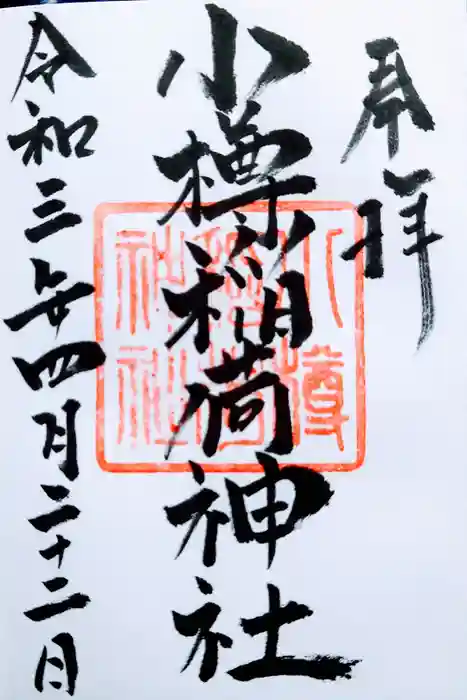 奉拝
小樽稲荷神社
令和三年四月二十二日
小樽
稲荷
神社